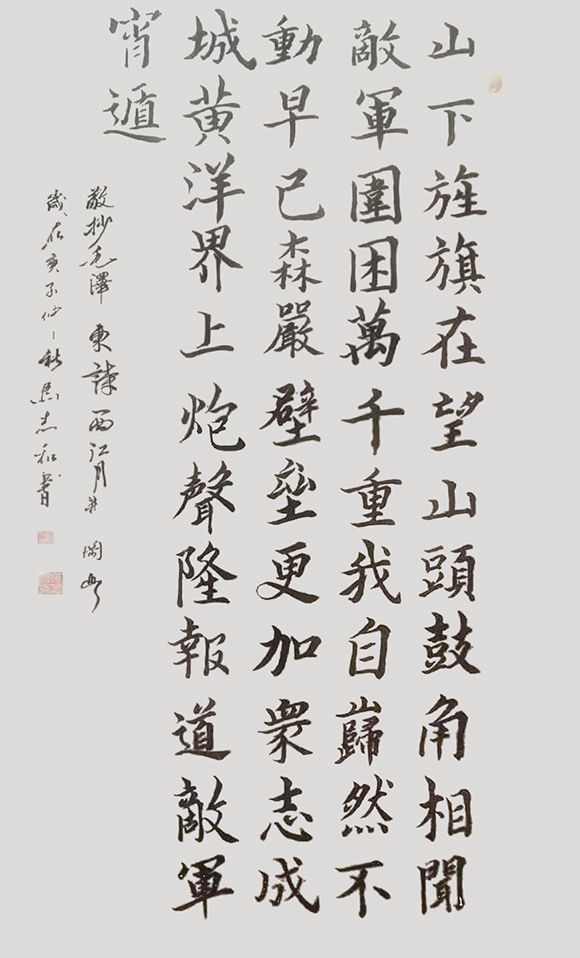 山下旌旗在望山頭鼓角相聞
敵軍圍困萬千重我自巋然不
動早已森嚴壁垒更加衆志成
城黄洋界上炮聲隆報道敵軍
宵遁
敬抄毛澤東詩西江月井岡山
歲在庚子仲秋志和書